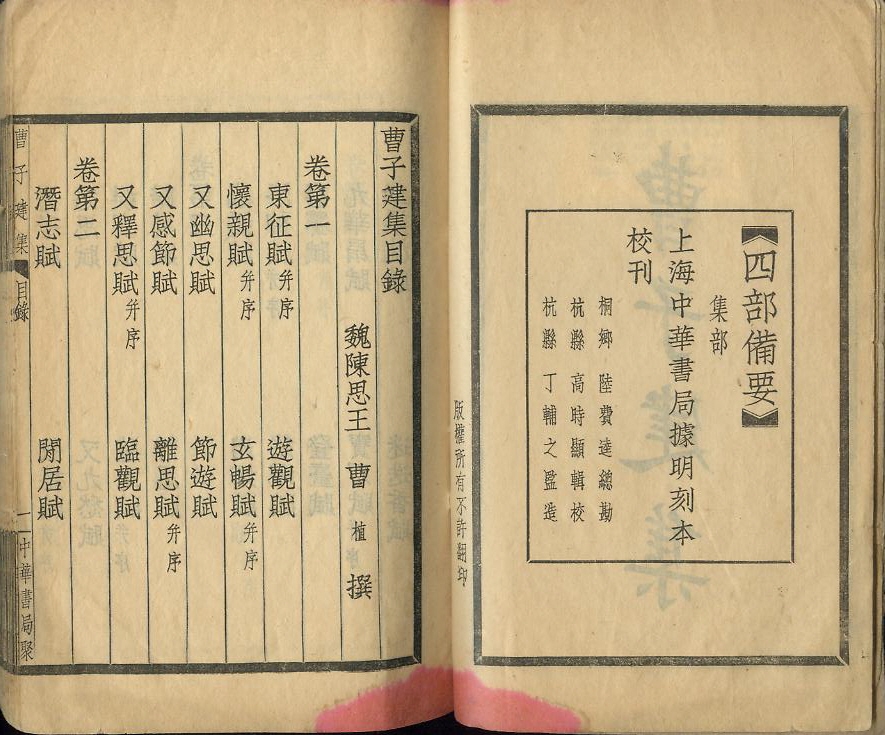 【四部備要】
集部
上海中華書局據明刻本
校刊
桐鄉 陸費逵總勘
杭縣 高時顯輯校
杭縣 丁輔之監造
版權所有不許翻印
曹子建集目錄
魏陳思王 曹植 撰
卷第一
東征賦并序 遊觀賦
懷親賦并序 玄暢賦并序
又幽思賦 節遊賦
又感節賦 離思賦并序
又釋思賦并序 臨觀賦
卷第二
潛志賦 閒居賦
曹子建集 目錄 一 中華書局聚